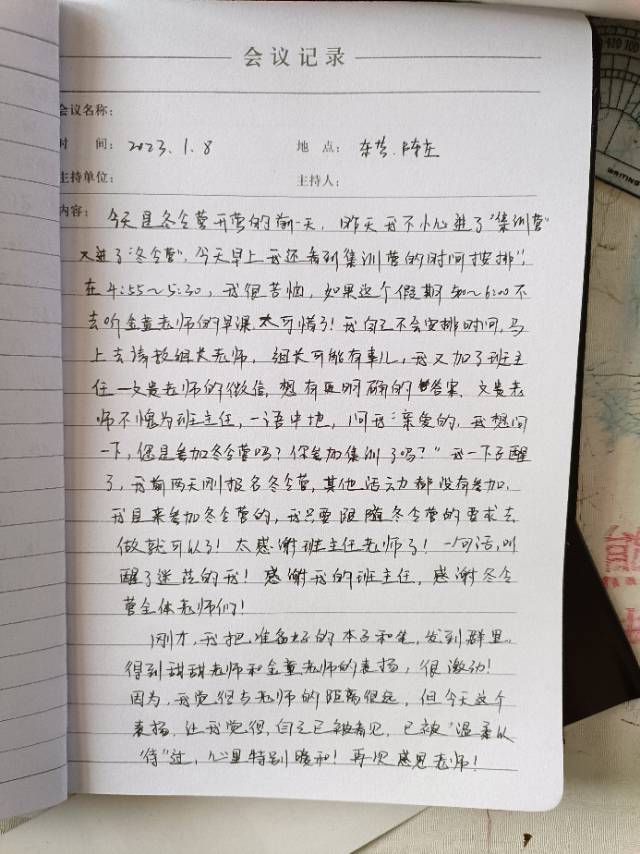 会议记录
会议名称：
时 间： 2023.1.8 地 点：
主持单位： 主持人：
内容： 今天是冬令营开营的前一天，昨天我不小心进了“集训营”
又进了“冬令营”，今天早上我还看到集训营的时间按排”，
在4:55～5:30，我很苦恼，如果这个假期 5:00～6:00不
去听金童老师的早课太可惜了！我自己不会安排时间，马
上去请教组长老师，组长可能有事儿，我又加了班主
任一文贵老师的微信，想有正明确的答案，文贵老
师不愧为班主任，一语中地，问我：亲爱的，我想问
一下，您是参加冬令营吗？你参加集训了吗？”我一下子醒
了，我前两天刚报名冬令营，其他活动都没有参加，
我是来参加冬令营的，我只要跟随冬令营的要求去
做就可以了！太感谢班主任老师了！一句话，叫
醒了迷茫的我！感谢我的班主任，感谢冬令
营全体老师们！
刚才，我把准备好的本子和笔，发到群里，
得到甜甜老师和金童老师的表扬，很激动！
因为，我觉得与老师的距离很远，但今天这个
表扬，让我觉得，自己已被看见，已被“温柔以
待”过，心里特别暖和！再次感恩老师！